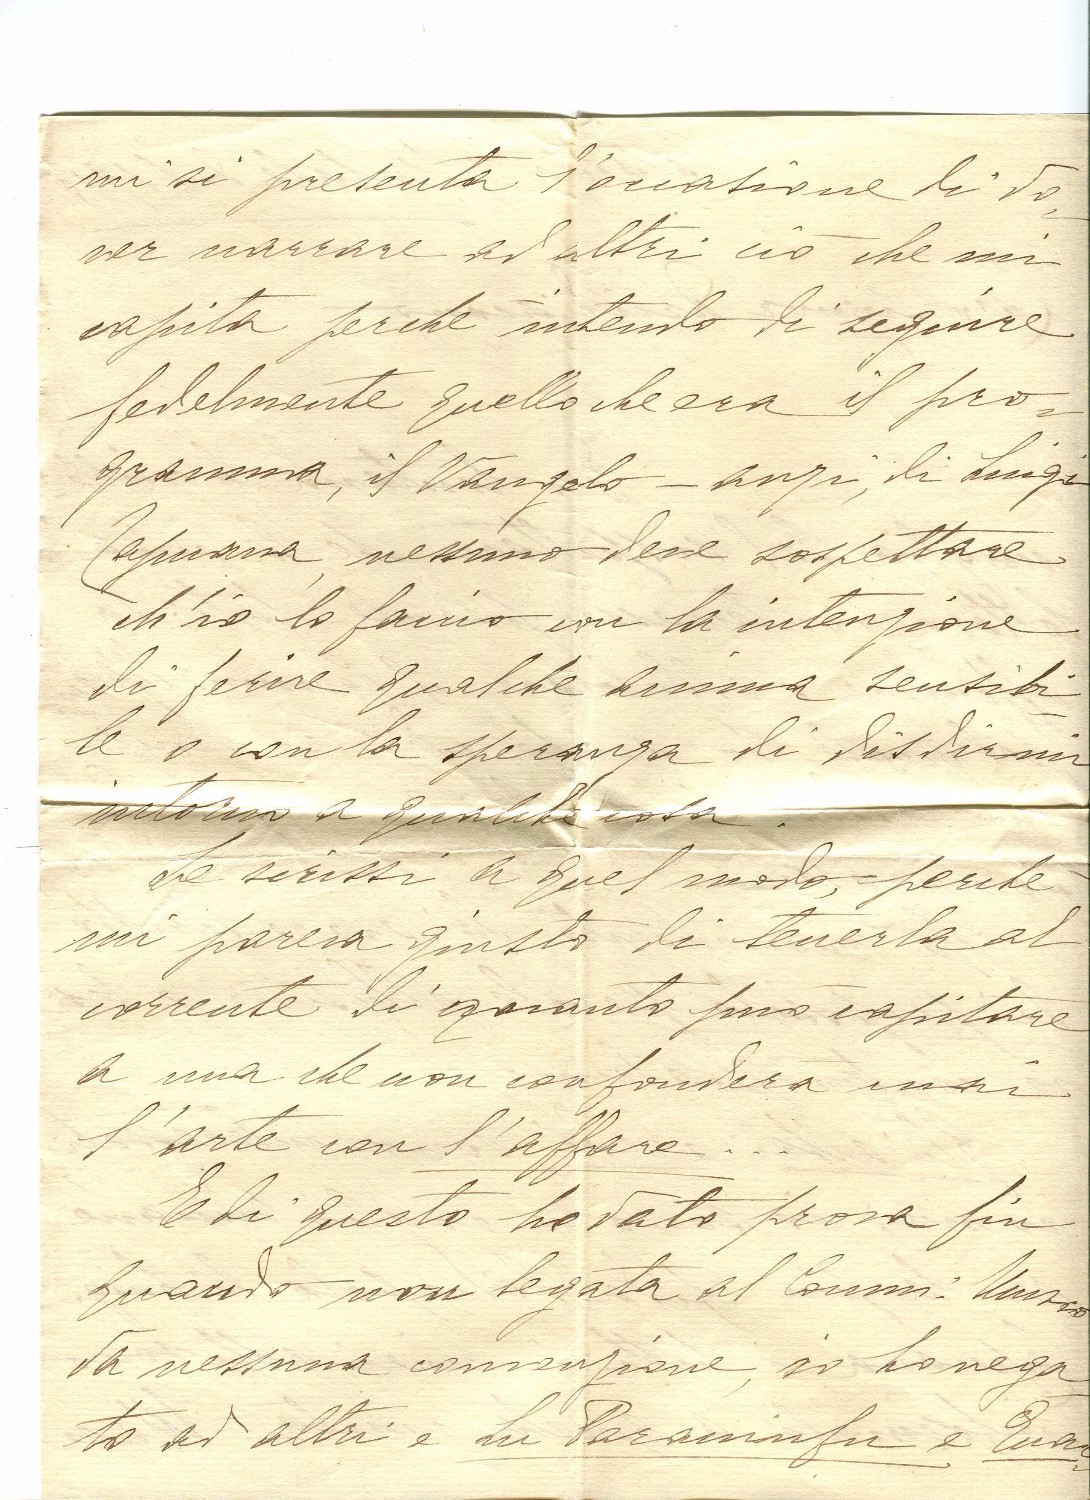 mi si presenta l'occasione di do=
ver narrare ad altri ciò che mi
capita perchè intendo di seguire
fedelmente quello che era il pro=
gramma, il Vangelo – anzi, di Luigi
Capuana, nessuno deve sospettare
ch'io lo faccio con la intenzione
di ferire qualche anima sensibi=
le o con la speranza di disdirmi
intorno a qualche cosa.
Le scrissi a quel modo, perchè
mi pareva giusto di tenerla al
corrente di quanto può capitare
a una che non confonderà mai
l'arte con l'affare...
E di questo ho dato prova fin
quando non legata al Comm: Musco
da nessuna convenzione, io ho nega
to ad altri e Lu Paraninfu e Quac=